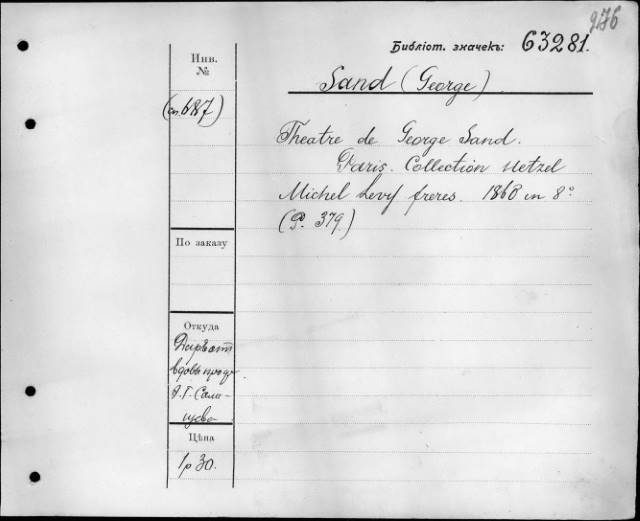 976
Библіот. значекъ: 63281.
Инв.
№
Sand (George)
(сп. 687)
Theatre de George Sand.
Paris. Collection Hetzel
Michel Levy freres. 1860 in 8°
(P. 379.)
По заказу
Откуда
Даръ от
вдовы проф.
Э. Г. Сали-
щева
Цѣна
1 р 30.